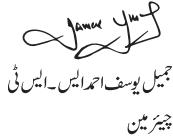 جمیل یوسف احمد ایس۔ایس ٹی
چیئر مین